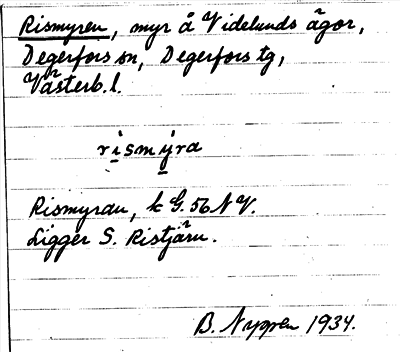 Rismyren, myr å Videlunds ägor,
Degerfors sn, Degerfors tg,
Västerb. l.
rismýra
Rismyran, k G. 56 NV.
Ligger S. Ristjärn.
B. Nygren 1934.